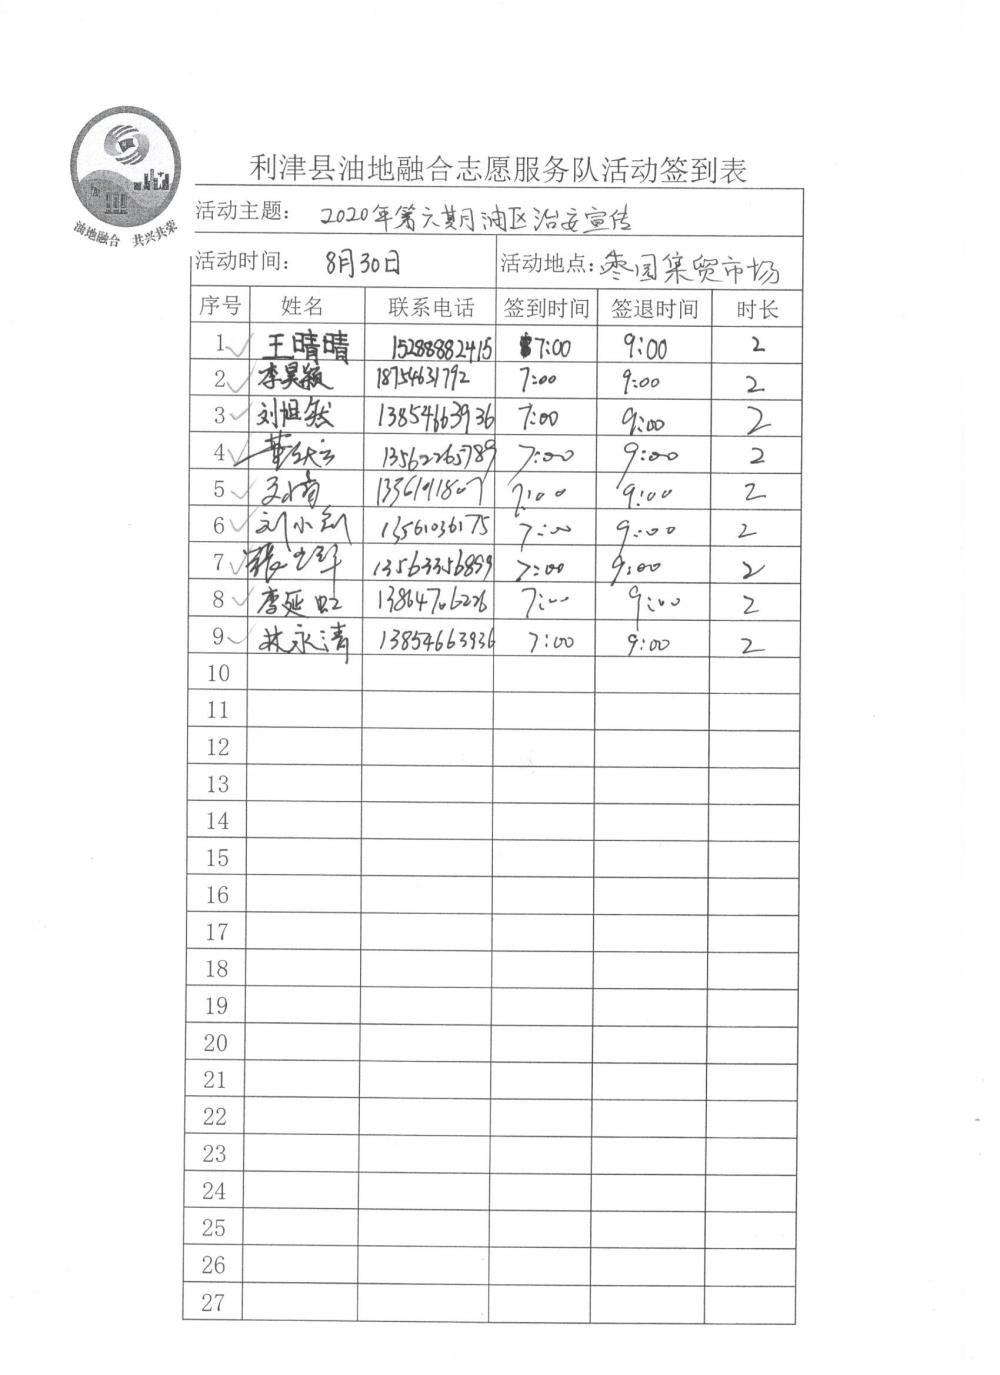 油地融合 共兴共荣
利津县油地融合志愿服务队活动签到表
活动主题： 2020年第六期油区治安宣传
活动时间： 8月30日 活动地点：枣园集贸市场
序号 姓名 联系电话 签到时间 签退时间 时长
1 王晴晴 15288882415 7:00 9:00 2
2 李昊颖 18754631792 7:00 9:00 2
3 刘旭然 13854663936 7:00 9:00 2
4 13562265789 7:00 9:00 2
5 7:00 9:00 2
6 刘小利 13561036175 7:00 9:00 2
7 13563356899 7:00 9:00 2
8 李延虹 13864706226 7:00 9:00 2
9 林永清 13854663936 7:00 9:00 2
10
11
12
13
14
15
16
17
18
19
20
21
22
23
24
25
26
27